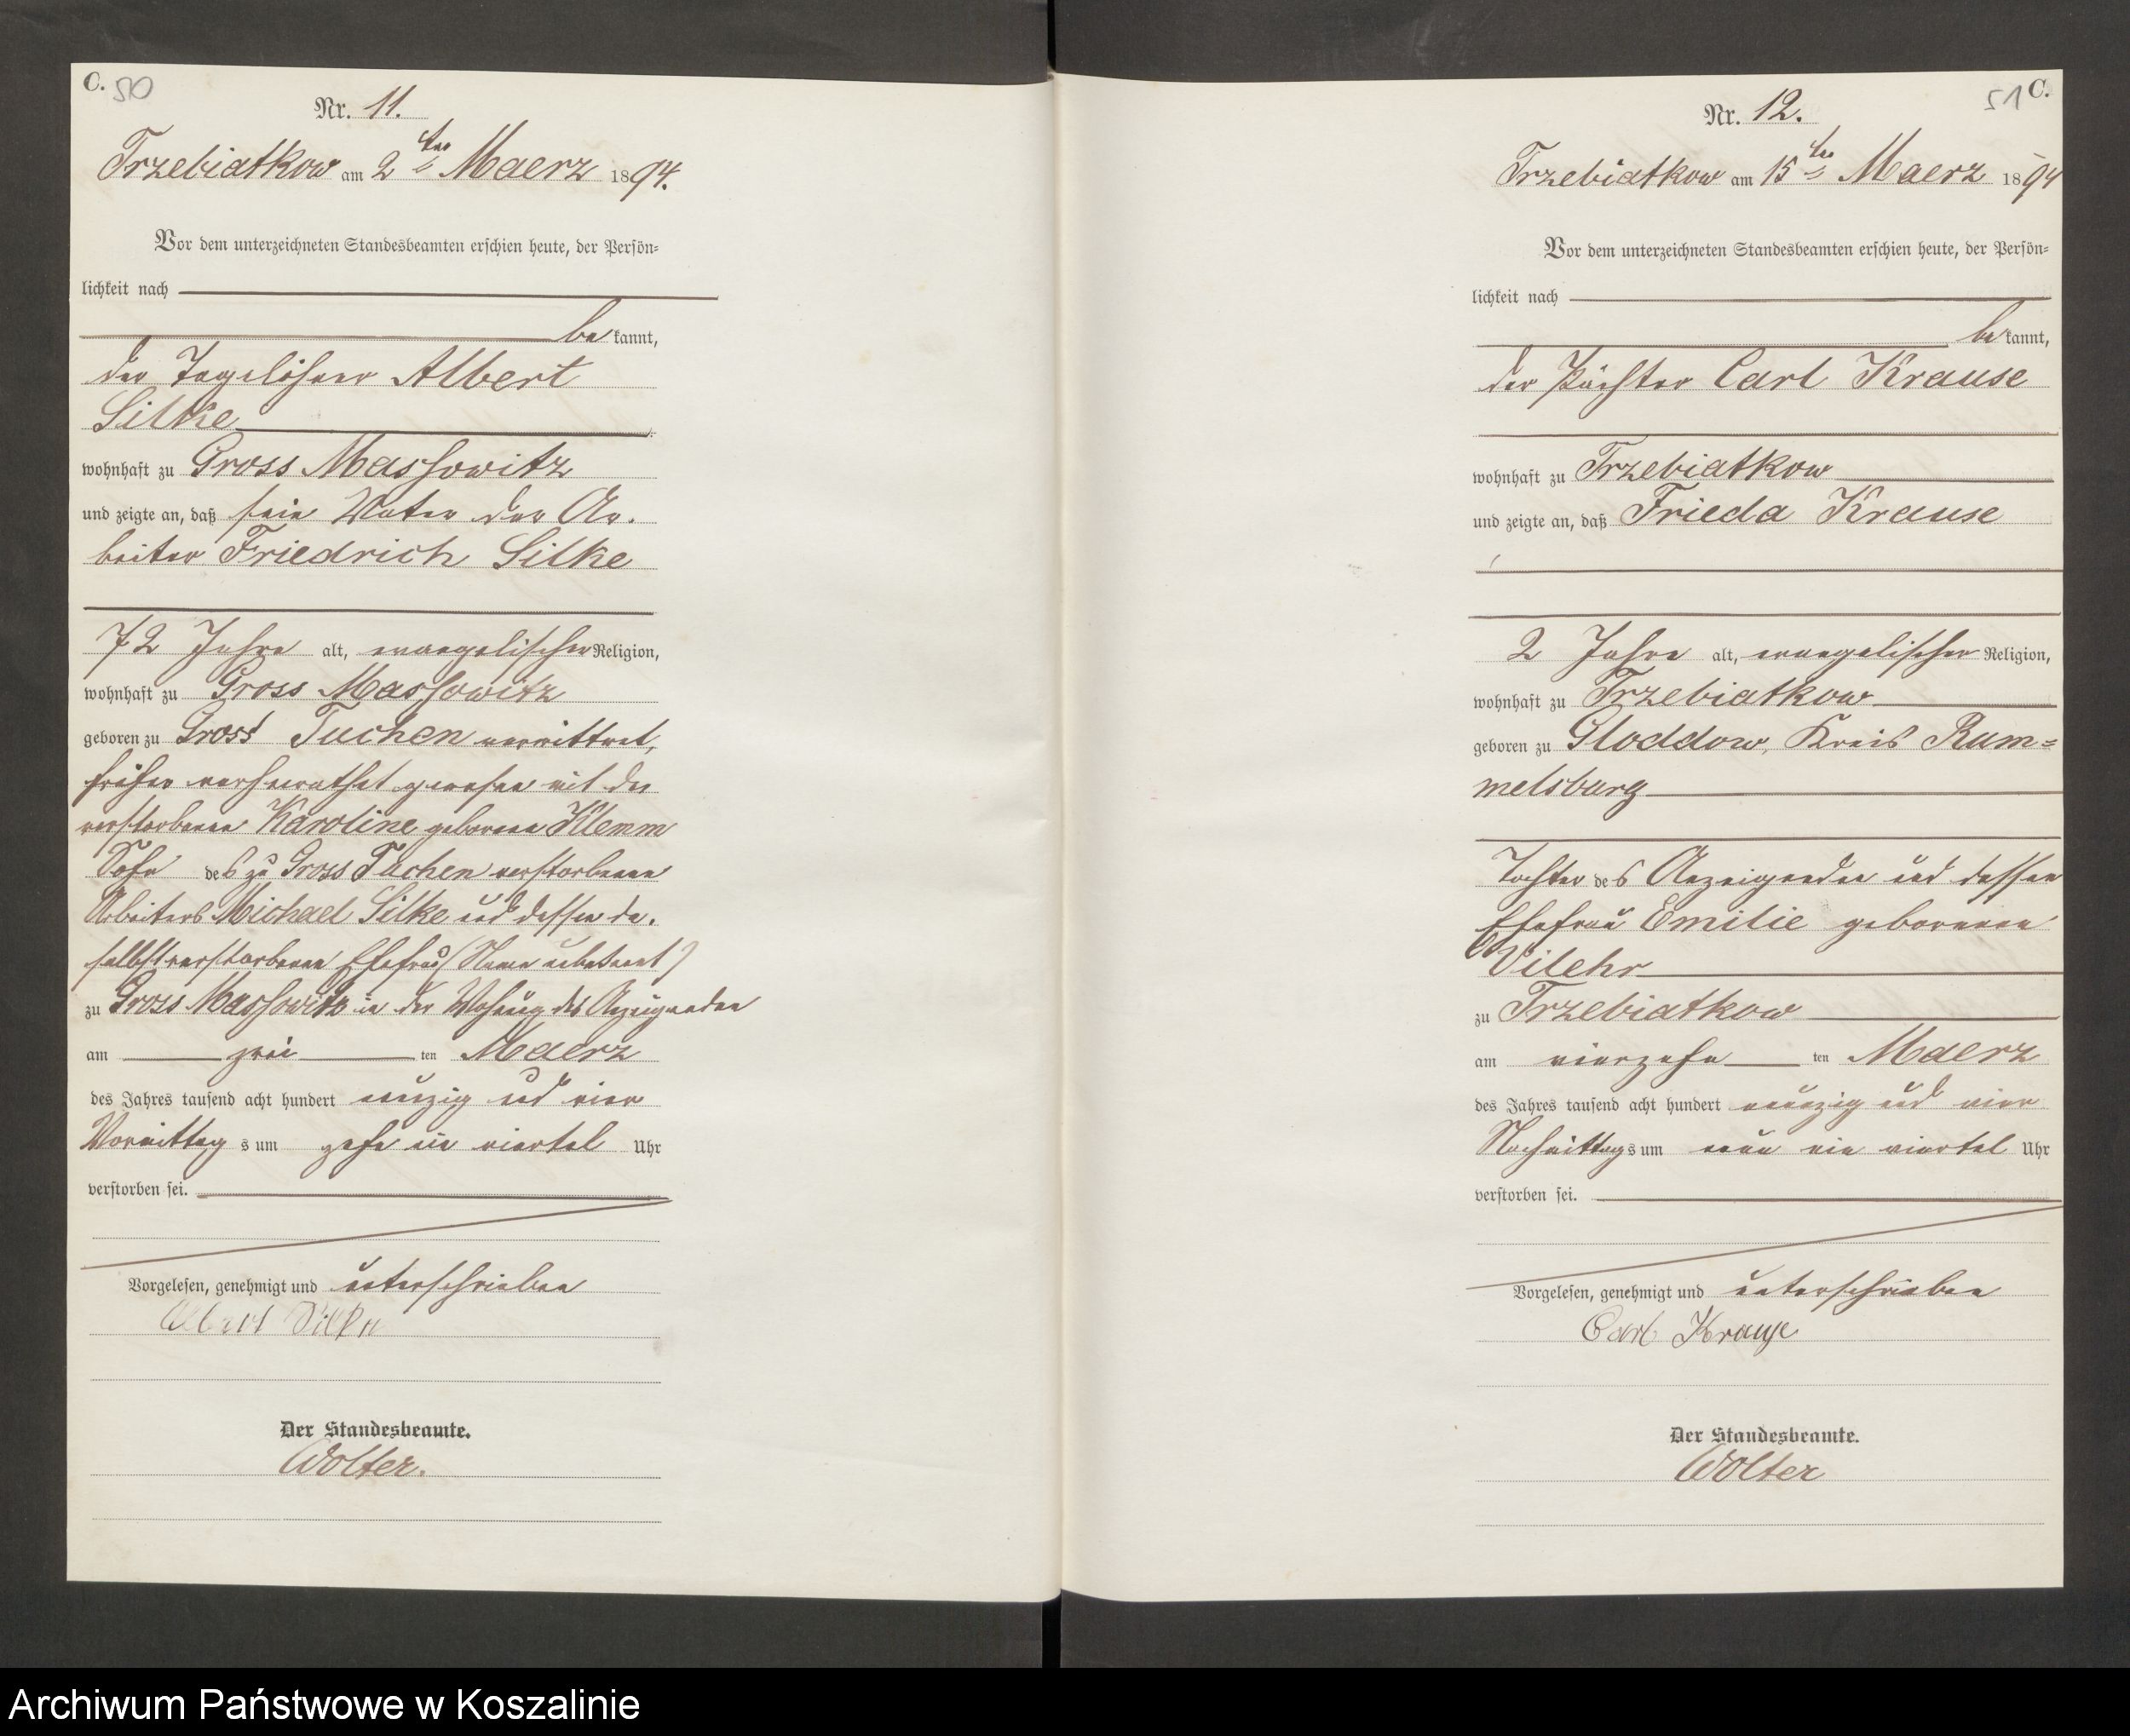 C. 50
Nr. 11.
Trzebiatkow am 2ten Maerz 1894.
Vor dem unterzeichneten Standesbeamten erschien heute, der Persön-
lichkeit nach
bekannt,
der Tagelöhner Albert
Silke
wohnhaft zu Gross Massowitz
und zeigte an, daß sein Vater der Ar-
beiter Friedrich Silke
72 Jahre alt, evangelischer Religion,
wohnhaft zu Gross Massowitz
geboren zu Gross Tuchen verwittwet,
früher verheirathet gewesen mit der
verstorbenen Karoline geborene Klemm
Sohn des zu Gross Tuchen verstorbenen
Arbeiters Michael Silke und dessen da-
selbst verstorbenen Ehefrau (Name unbekannt)
zu Gross Massowitz in der Wohnung des Anzeigenden
am zwei ten Maerz
des Jahres tausend acht hundert neunzig und vier
Vormittags um zehn ein viertel Uhr
verstorben sei.
Vorgelesen, genehmigt und unterschrieben
Albert Silke
Der Standesbeamte.
Wolter.
51 C.
Nr. 12.
Trzebiatkow am 15ten Maerz 1894
Vor dem unterzeichneten Standesbeamten erschien heute, der Persön-
lichkeit nach
bekannt,
der Pächter Carl Krause
wohnhaft zu Trzebiatkow
und zeigte an, daß Frieda Krause
2 Jahre alt, evangelischer Religion,
wohnhaft zu Trzebiatkow
geboren zu Gloddow, Kreis Rum-
melsburg
Tochter des Anzeigenden und dessen
Ehefrau Emilie geborenen
Vilehr
zu Trzebiatkow
am vierzehn ten Maerz
des Jahres tausend acht hundert neunzig und vier
Nachmittags um neun ein viertel Uhr
verstorben sei.
Vorgelesen, genehmigt und unterschrieben
Carl Krause
Der Standesbeamte.
Wolter
Archiwum Państwowe w Koszalinie